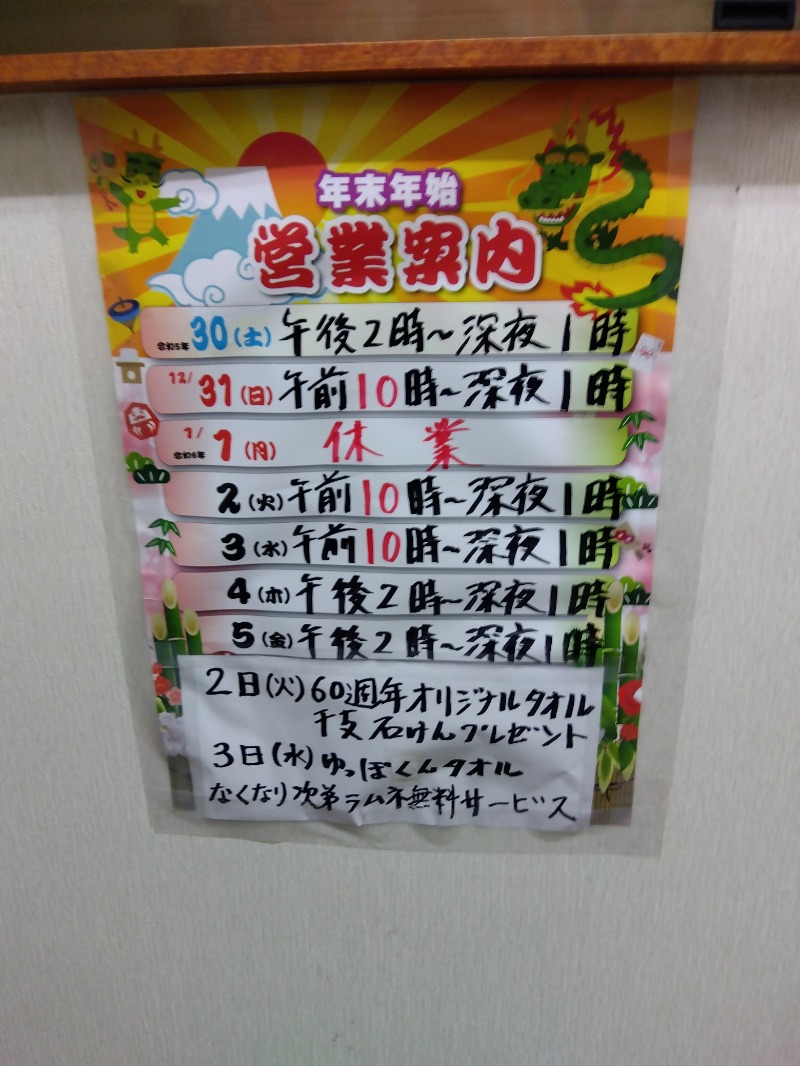 年末年始
営業案内
令和5年 30(土) 午後2時~深夜1時
12/31(日) 午前10時~深夜1時
令和6年 1/1(月) 休業
2(火) 午前10時~深夜1時
3(水) 午前10時~深夜1時
4(木) 午後2時~深夜1時
5(金) 午後2時~深夜1時
2日(火)60週年オリジナルタオル
干支石けんプレゼント
3日(水)ゆっぽくんタオル
なくなり次第ラムネ無料サービス